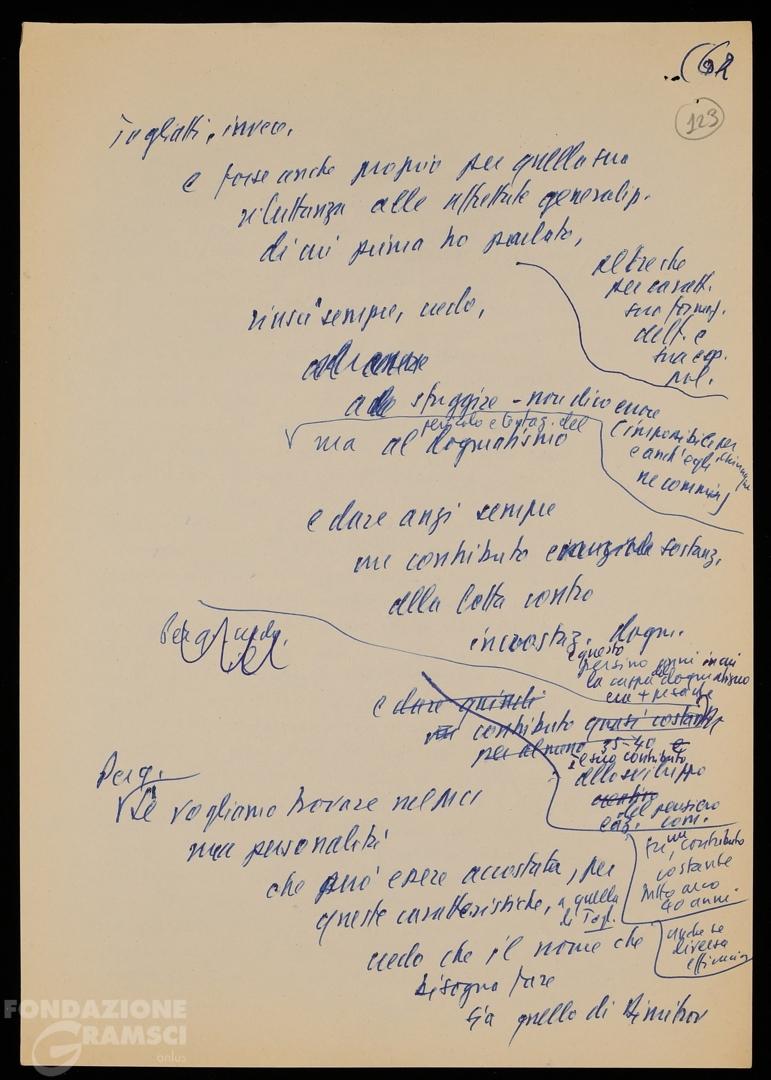 ..(62
123
Togliatti, invece,
e forse anche proprio per quella sua
riluttanza alle affrettate generaliz.
di cui prima ho parlato,
oltre che
per caratt.
sua formaz.
dell. e
sua esp.
pol.
riuscì sempre, credo,
a sfuggire - non dico errore
(impossibile per
e anch'egli
ne commise)
pericolo e tentaz. del
ma al dogmatismo
e dare anzi sempre
un contributo sostanz.
alla lotta contro
incrostaz. dogm.
e questo
persino anni in cui
la cappa del dogmatismo
era + pesante
e dare quindi
un contributo quasi costante
per almeno 35-40 e
e suo contributo
allo sviluppo
del pensiero
com.
fu un contributo
costante
40 anni.
anche se
diversa
efficacia
Perg.
Se vogliamo trovare nel MCI
una personalità
che può essere accostata, per
queste caratteristiche, a quella
di Togl.
credo che il nome che
bisogna fare
sia quello di Dimitrov
FONDAZIONE
GRAMSCI
onlus